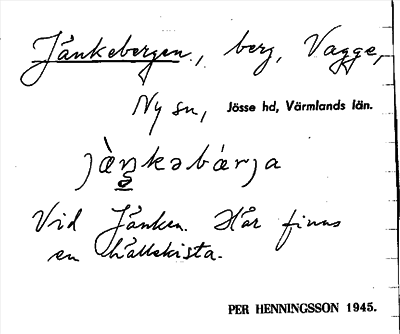 Jånkebergen., berg, Vagge,
Ny sn, Jösse hd, Värmlands län.
Vid Jånken. Här finns
en hällekista.
PER HENNINGSSON 1945.